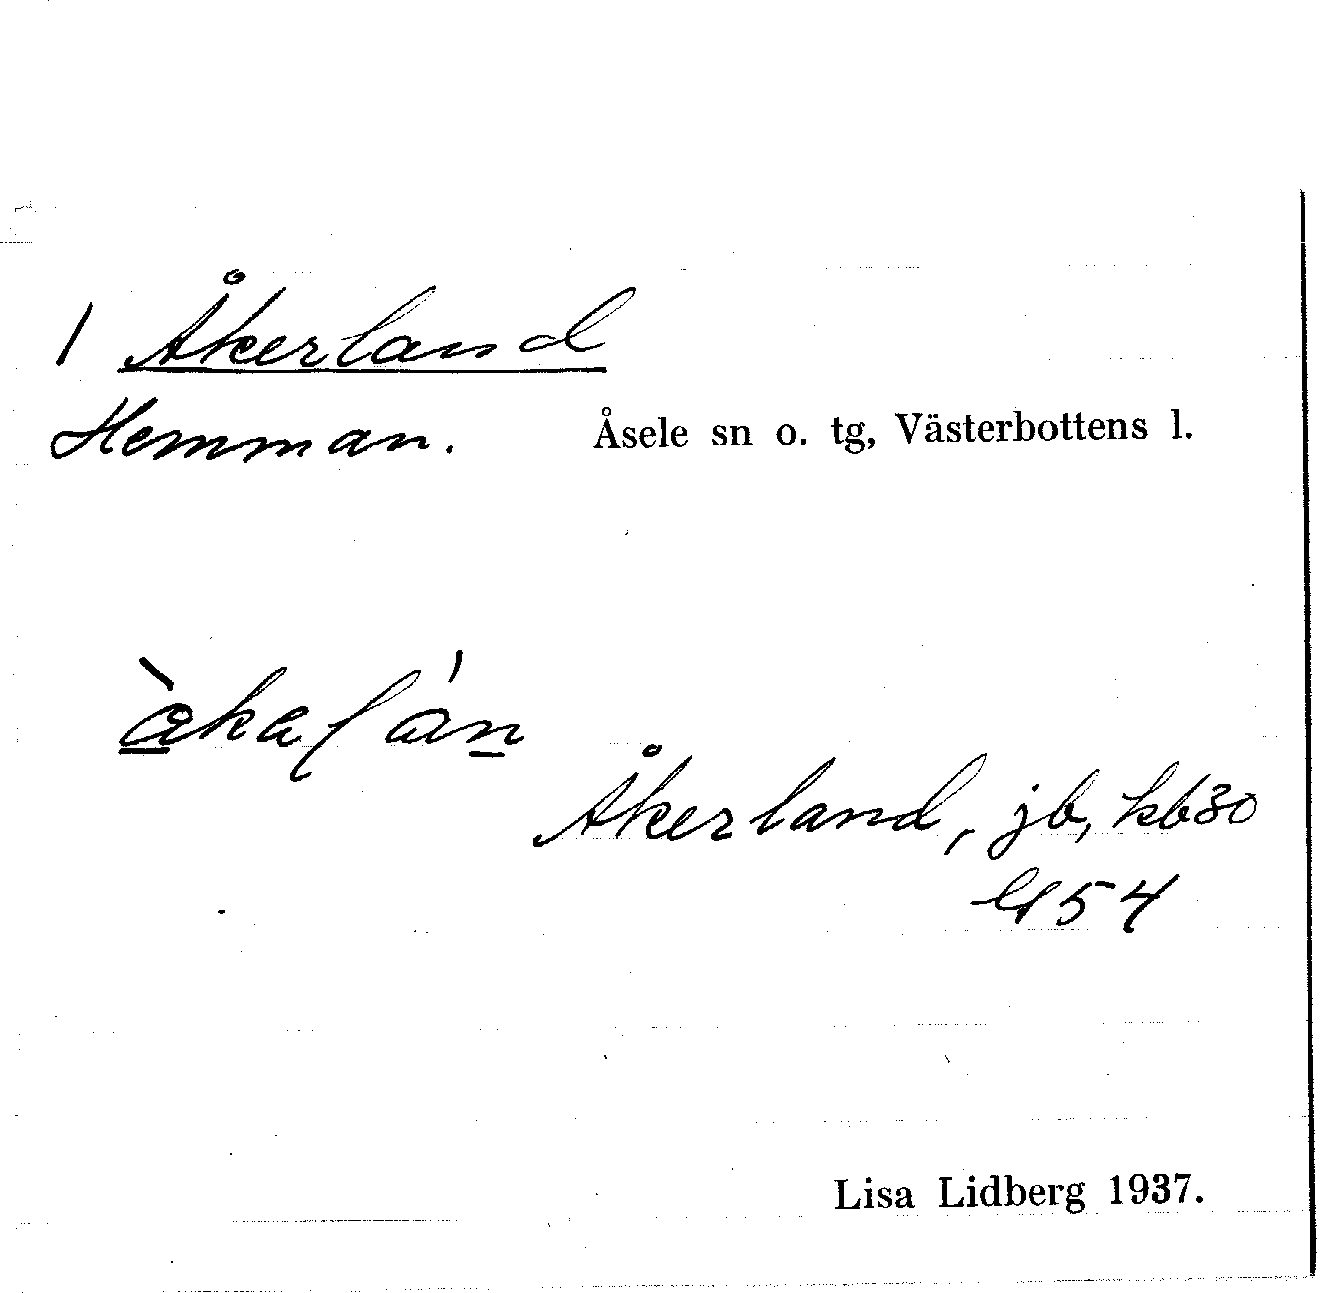 1 Åkerland
Hemman. Åsele sn o. tg, Västerbottens l.
Åkerland, jb, kb30
54
Lisa Lidberg 1937.